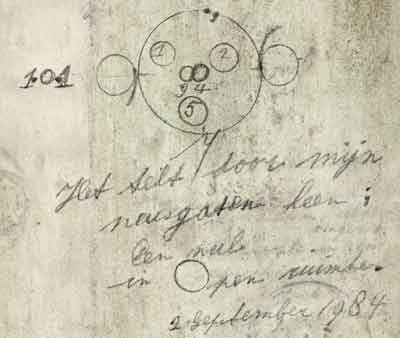 101
1 2
3 4
5
Het telt door mijn
neusgaten heen:
Een nul
in Open ruimte.
2 September 1984